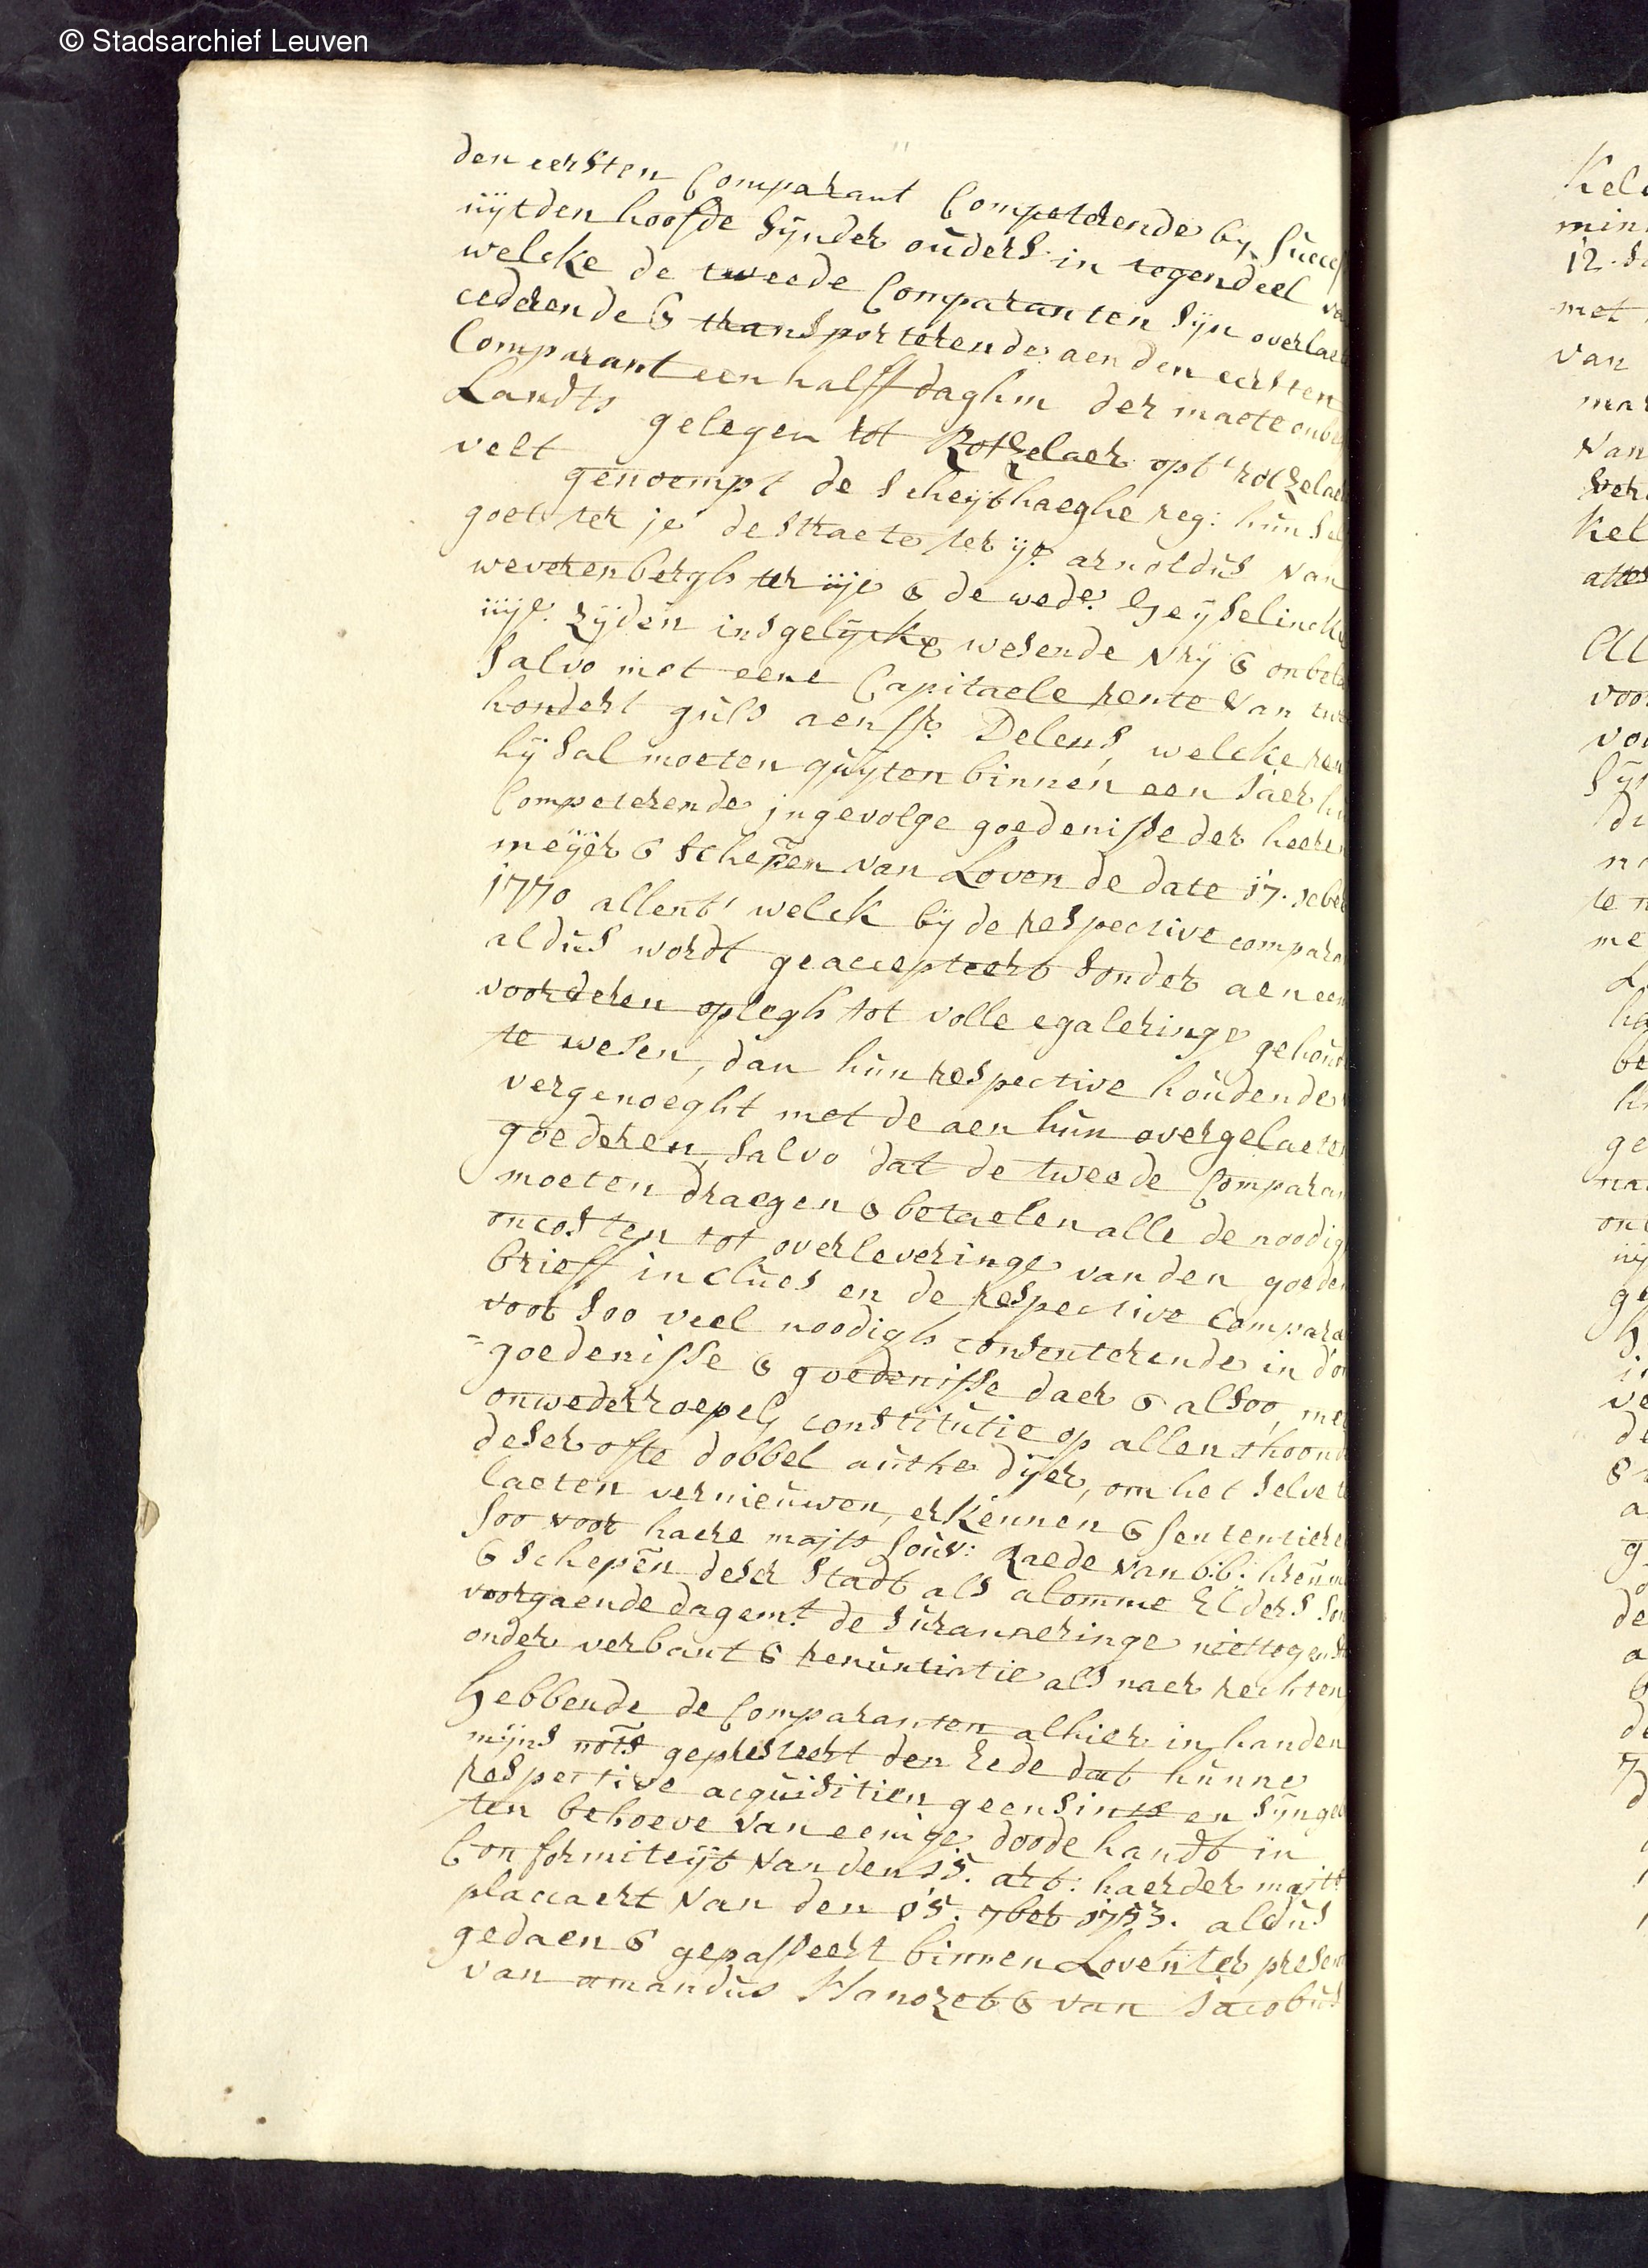 © Stadsarchief Leuven
den eersten Comparant Competerende by succes
uijtden hoofde sijnder ouders in tegendeel va
welcke de tweede Comparanten sijn overlaete
cederende & transporterende aen den eersten
Comparant een halff daghm der maete onbe
Landts gelegen tot Rotzelaer opt' rotzelaer
velt genoempt de scheijthaeghe reg: hun sel
goet ter je de straete ter ije arnoldus van
weverenbergh ter iije & de wede Geijselinckx
iiije. zijden insgelijckx wesende vrij & onbela
salvo met eene Capitaele rente van twe
hondert guls aen sr. Delens, welcke ren
hij sal moeten quijten binnen een jaer hu
Competerende ingevolge goedenisse der heere
meijer & schepen van Loven de date 17. xbe
1770 allent' welck bij de respective compara
aldus wordt geaccepteert sonder aen een
voorderen oplegh tot volle egaleringe gehoud
te wesen, dan hun respective houdende
vergenoeght met de aen hun overgelaete
goederen, salvo dat de tweede Comparan
moeten draegen & betaelen alle de noodig
oncosten tot overleveringe van den goeden
brieff incluos en de respective Compara
voor soo veel noodigh consenterende in d'on
goedenisse & goedenisse daer & alsoo, met
onwederroepel, constitutie op allen thoond
deser ofte dobbel authe dijer, om het selve te
laeten vernieuwen, erkennen & sententiere
soo voor haere majts souv: Raede van b:b: heeren
& schepen deser stadt als alomme Elders son
voorgaende dagemt de suranneringe niettegens
onder verbant & renuntiatie als naer rechten
Hebbende de Comparanten alhier in handen
mijns nots gepresteert den Eede dat hunne
respective acquisitien geensints en sijn ged
ten behoeve van eenige doode handt in
Conformiteijt van den 15. art: haerder majts
placcaert van den 15. 7ber 1753. aldus
gedaen & gepasseert binnen Loven ter presen
van amandus Hanozet & van Jacobus
Kel
min
12. s
met
van
mar
van
Ver
kel
attes
All
voor
vo
sij
du
te
me